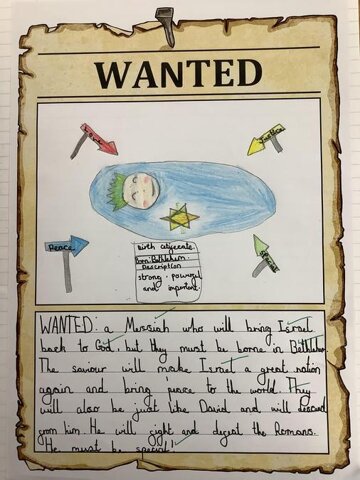 WANTED
Love
Justice
Peace
Birth citificate
from Bethlehem.
Description
strong, powerful
and important.
WANTED: a Messiah who will bring Israel
back to God, but they must be borne in Bethlehem
The saviour will make Israel a great nation
again and bring peace to the world. They
will also be just like David and will descend
from him. He will fight and defeat the Romans.
He must be special!